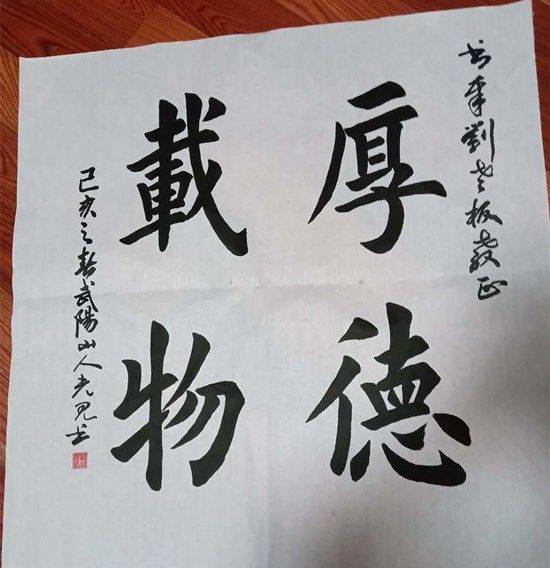 书奉劉老板教正
厚德
載物
己亥之春武陽山人光书